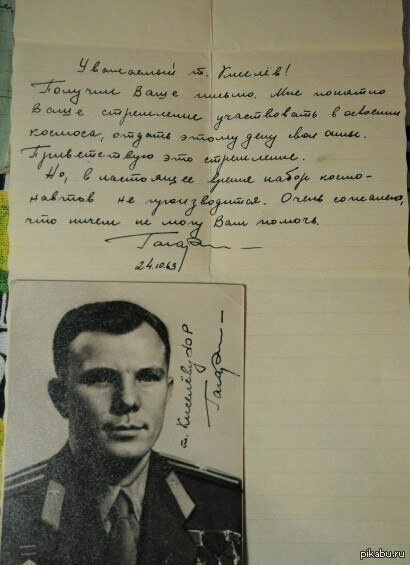 Уважаемый т. Киселёв!
Получил Ваше письмо. Мне понятно
Ваше стремление участвовать в освоении
космоса, отдать этому делу свои силы.
Приветствую это стремление.
Но, в настоящее время набор космо-
навтов не производится. Очень сожалею,
что ничем не могу Вам помочь.
Гагарин
24.10.63
т. Киселёву Ю Р
Гагарин
pikabu.ru